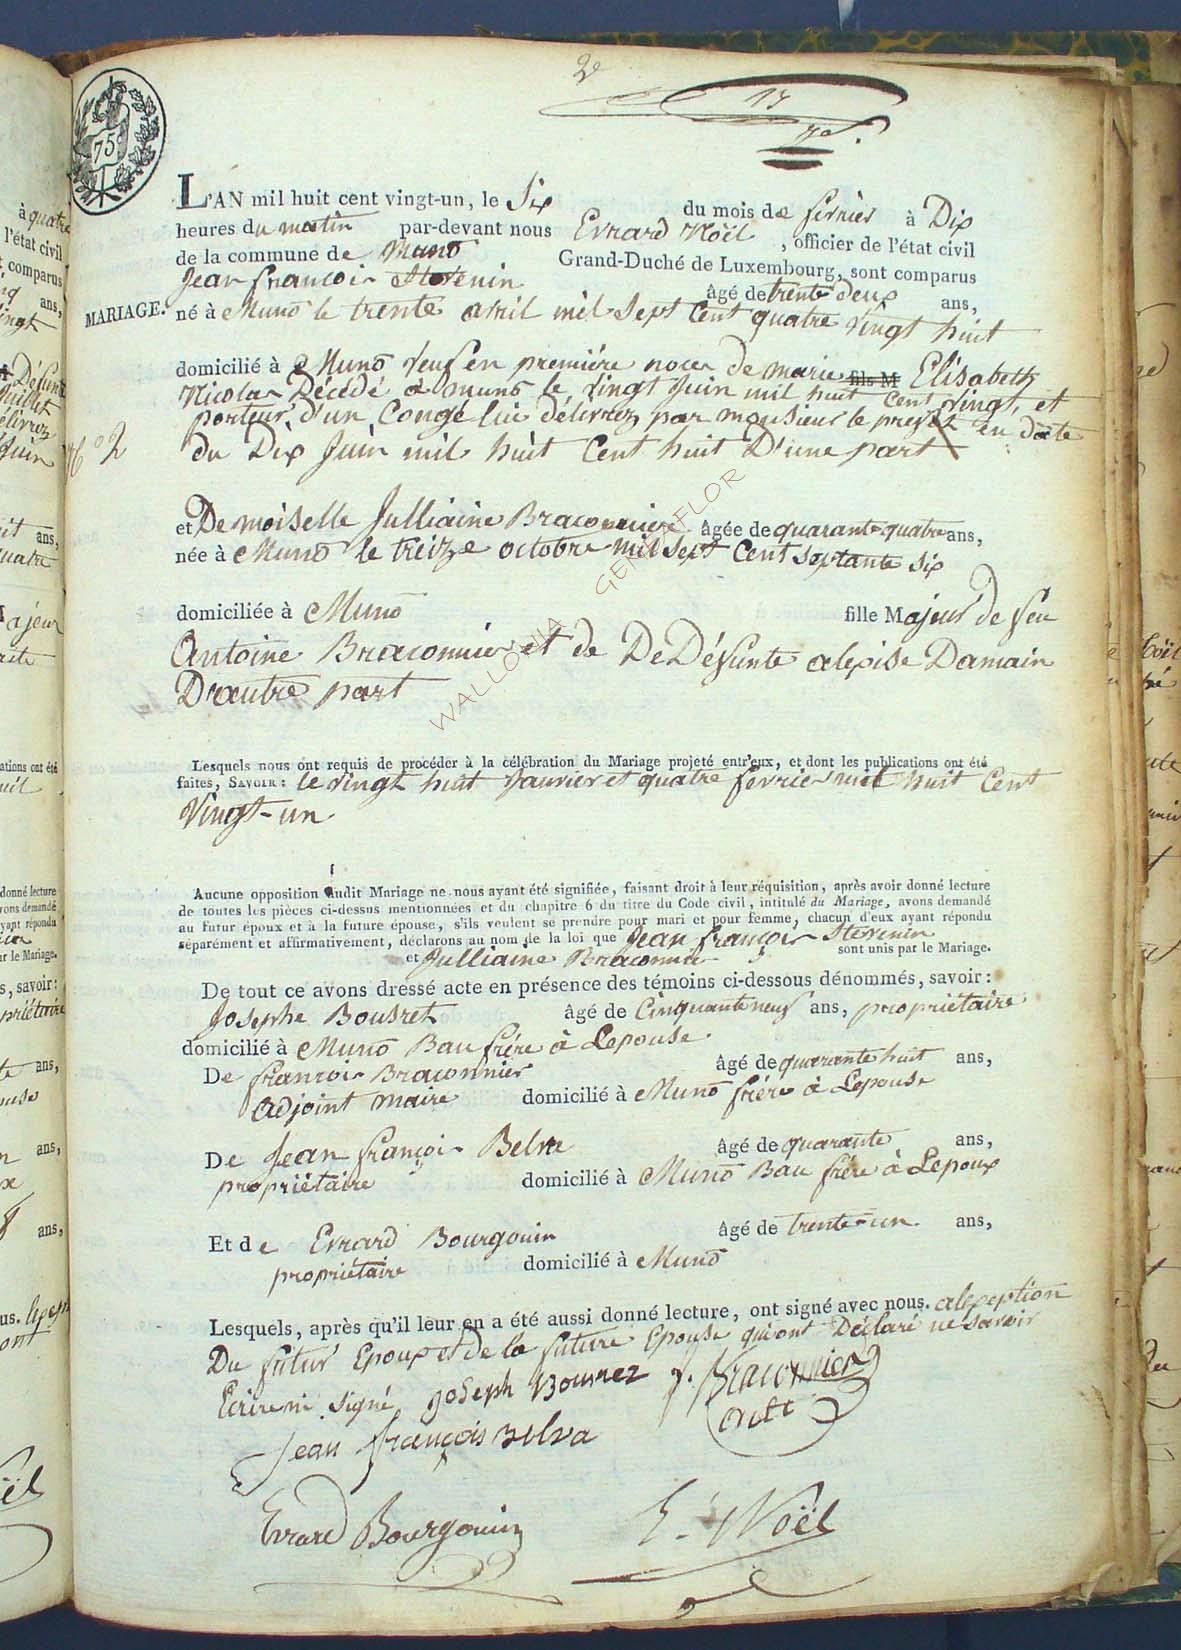 2e
17
75
L'AN mil huit cent vingt-un, le Six du mois de fevrier à Dix
heures du matin par-devant nous Evrard Noël, officier de l'état civil
de la commune de Muno Grand-Duché de Luxembourg, sont comparus
Jean françois Stevenin âgé de trente deux ans,
MARIAGE.
né à Muno le trente avril mil Sept Cent quatre vingt huit
domicilié à Muno veuf en première noces de marie fils M Elisabeth
Nicolas Décédé à muno le vingt Juin mil huit Cent vingt, et
porteur d'un Congé lui délivrez par monsieur le prefet en date
du Dix Juin mil huit Cent huit D'une part
No 2
et Demoiselle Julliaine Braconniere âgée de quarante quatre ans,
née à Muno le treize octobre mil sept Cent Septante six
domiciliée à Muno fille Majeur de feu
Antoine Braconnier et de De Défunte alexise Damain
D'autre part
WALLONIA GENEAFLOR
Lesquels nous ont requis de procéder à la célébration du Mariage projeté entr'eux, et dont les publications ont été
faites, SAVOIR : le vingt huit Janvier et quatre fevrier mil huit Cent
Vingt-un
Aucune opposition audit Mariage ne nous ayant été signifiée, faisant droit à leur réquisition, après avoir donné lecture
de toutes les pièces ci-dessus mentionnées et du chapitre 6 du titre du Code civil, intitulé du Mariage, avons demandé
au futur époux et à la future épouse, s'ils veulent se prendre pour mari et pour femme, chacun d'eux ayant répondu
séparément et affirmativement, déclarons au nom de la loi que Jean françois Stevenin
et Julliaine Braconnier sont unis par le Mariage.
De tout ce avons dressé acte en présence des témoins ci-dessous dénommés, savoir :
Josephe Bousret âgé de Cinquante neuf ans, propriétaire
domicilié à Muno Bau frére à Lepouse
De francois Braconnier âgé de quarante huit ans,
adjoint maire domicilié à Muno frére à Lepouse
De Jean françois Belva âgé de quarante ans,
propriétaire domicilié à Muno Bau frére à Lepoux
Et de Evrard Bourgouin âgé de trente-un ans,
propriétaire domicilié à Muno
Lesquels, après qu'il leur en a été aussi donné lecture, ont signé avec nous. alexeption
Du futur Epoux et de la future Epouse qui ont Déclaré ne savoir
Ecrire ni signé Joseph Bousrez f. Braconnier
Jean françois Belva
Evrard Bourgouin E. Noël